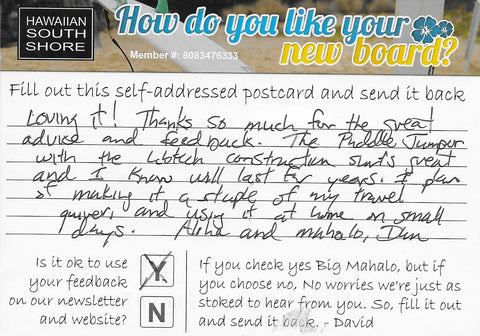 HAWAIIAN
SOUTH
SHORE
How do you like your
new board?
Member #: 8083476333
Fill out this self-addressed postcard and send it back
Loving it! Thanks so much for the great
advice and feedback. The Puddle Jumper
with the Libtech construction surf's great
and I know will last for years. I plan
of making it a staple of my travel
quiver, and using it at home on small
days. Aloha and mahalo, Dan
Is it ok to use
your feedback
on our newsletter
and website?
Y
N
If you check yes Big Mahalo, but if
you choose no, No worries we're just as
stoked to hear from you. So, fill it out
and send it back. - David